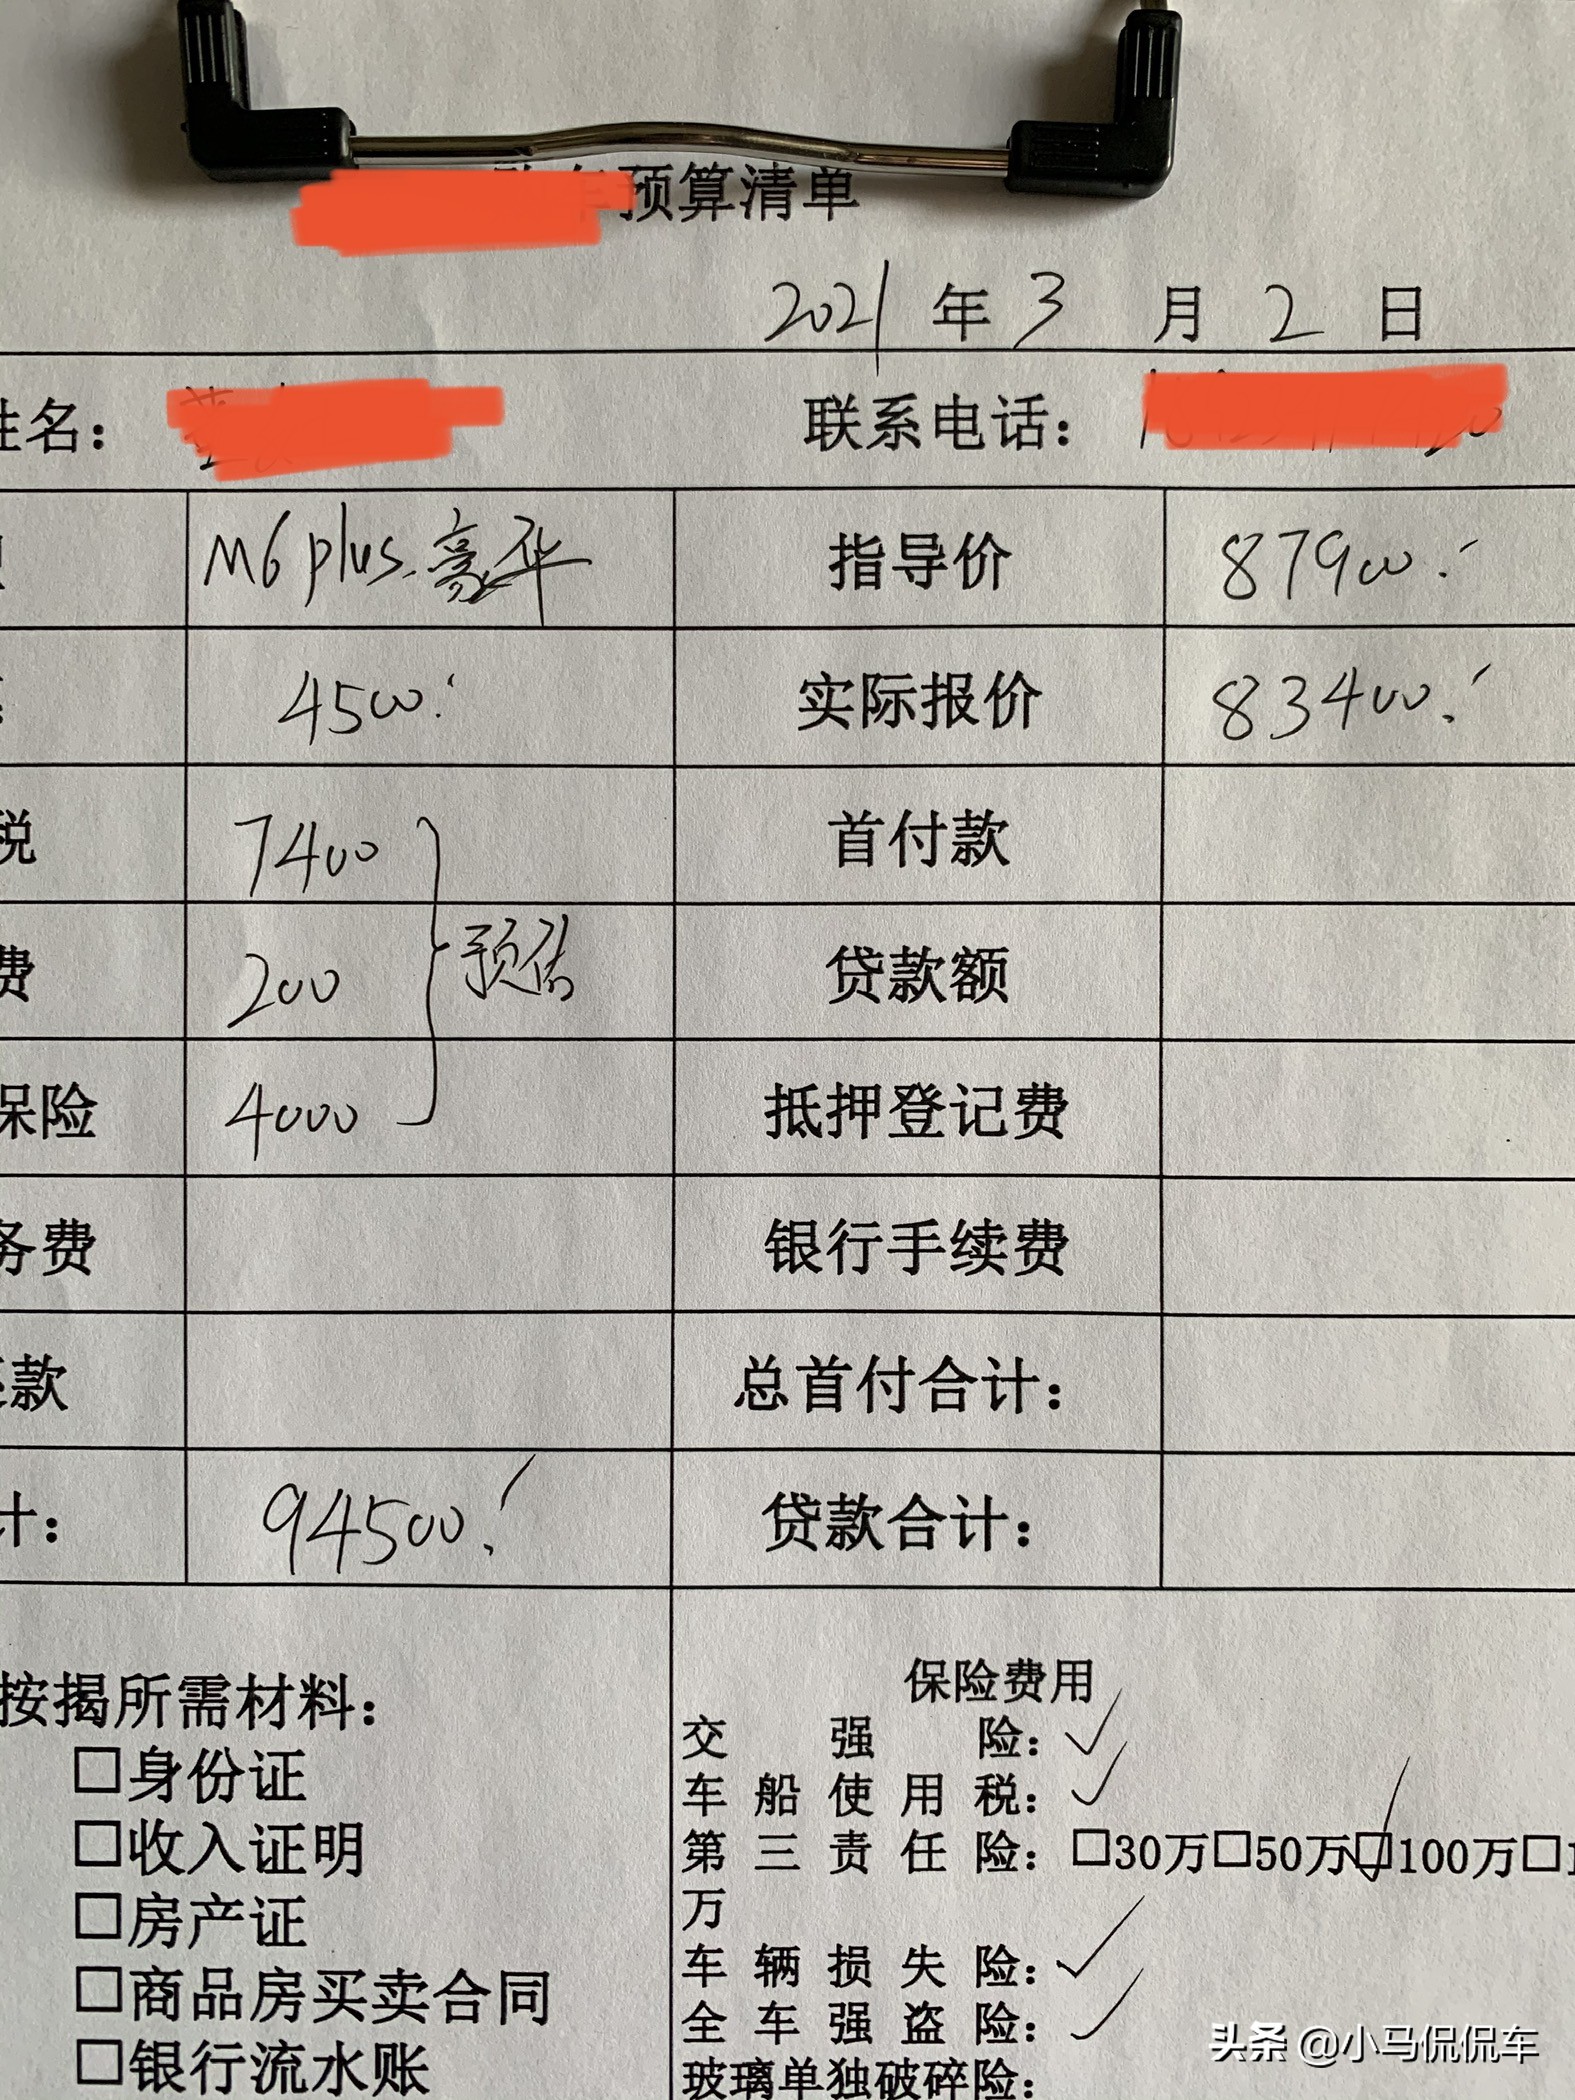 预算清单
2021 年 3 月 2 日
姓名： 联系电话：
M6 plus. 豪华 指导价 87900.
4500. 实际报价 83400.
税 7400 首付款
费 200 预估 贷款额
保险 4000 抵押登记费
务费 银行手续费
款 总首付合计：
计： 94500. 贷款合计：
按揭所需材料：
□身份证
□收入证明
□房产证
□商品房买卖合同
□银行流水账
保险费用
交强险：✓
车船使用税：✓
第三责任险：□30万□50万☑100万□1
万
车辆损失险：✓
全车强盗险：✓
玻璃单独破碎险：
头条 @小马侃侃车